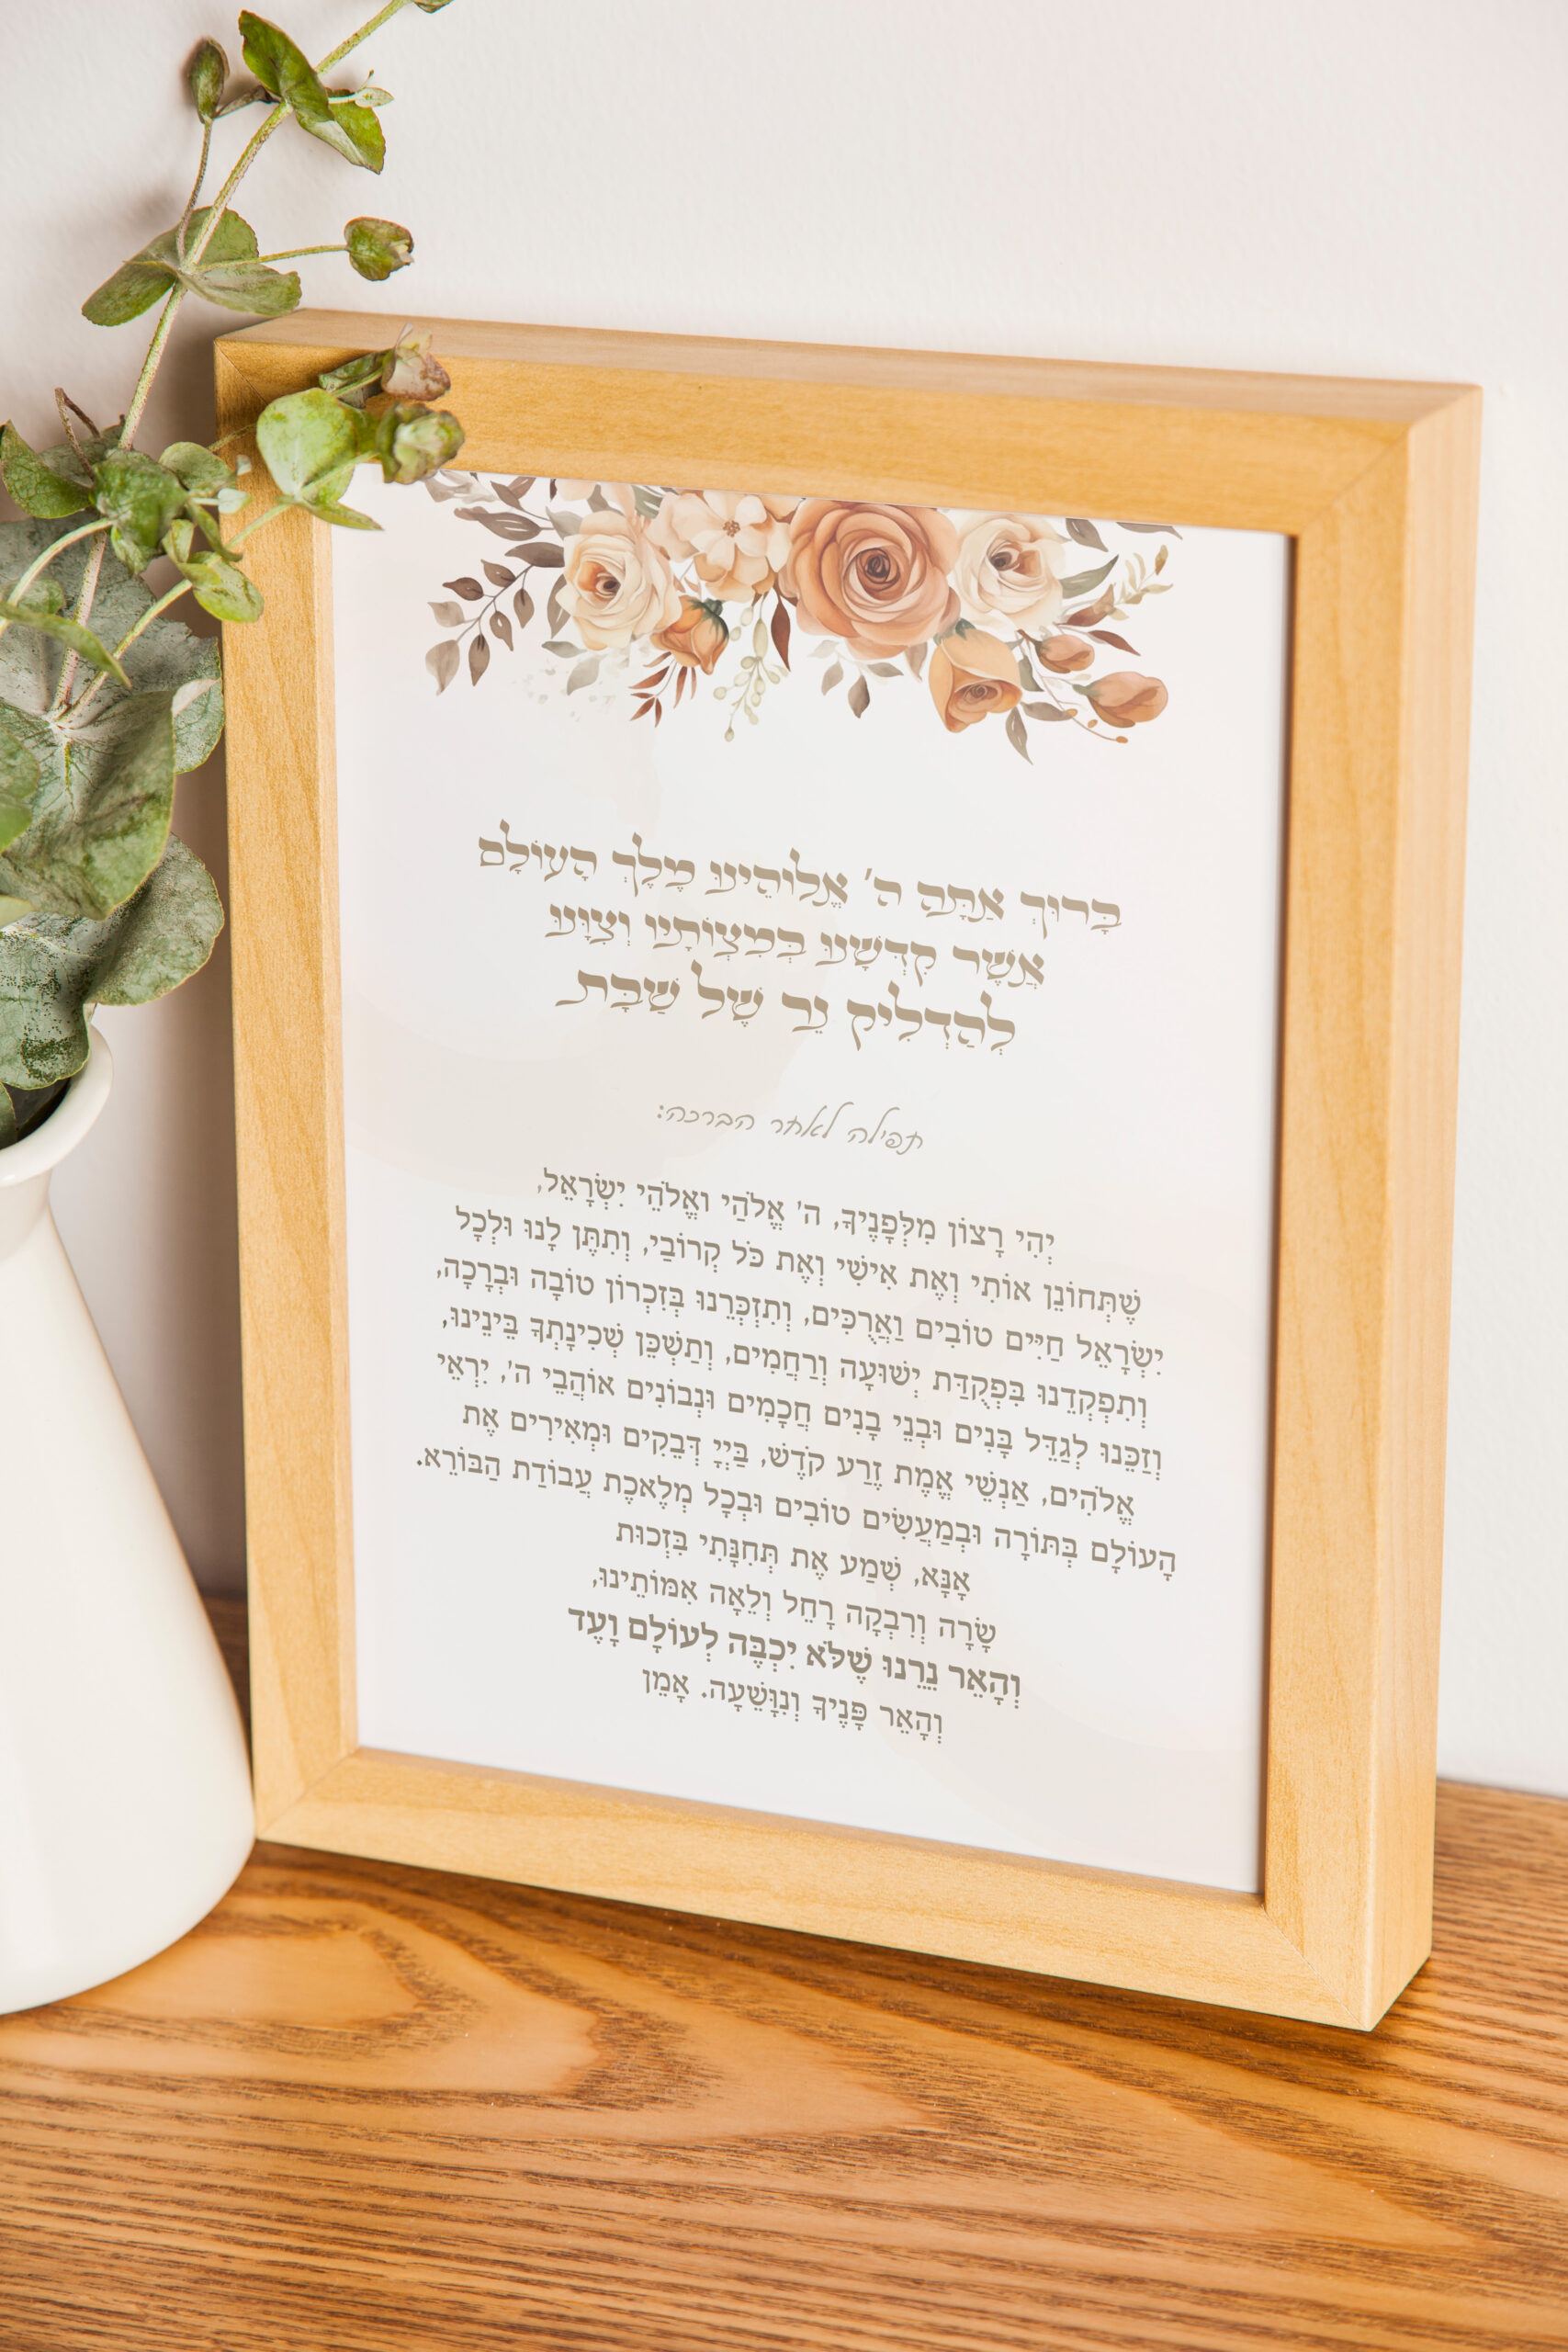 בָּרוּךְ אַתָּה ה' אֱלוֹהֵינוּ מֶלֶךְ הָעוֹלָם
אֲשֶׁר קִדְּשָׁנוּ בְּמִצְוֹתָיו וְצִוָּנוּ
לְהַדְלִיק נֵר שֶׁל שַׁבָּת
תפילה לאחר הברכה:
יְהִי רָצוֹן מִלְּפָנֶיךָ, ה' אֱלֹהַי וֵאֱלֹהֵי יִשְׂרָאֵל,
שֶׁתְּחוֹנֵן אוֹתִי וְאֶת אִישִׁי וְאֶת כֹּל קְרוֹבַי, וְתִתֶּן לָנוּ וּלְכָל
יִשְׂרָאֵל חַיִּים טוֹבִים וַאֲרֻכִּים, וְתִזְכְּרֵנוּ בְּזִכְרוֹן טוֹבָה וּבְרָכָה,
וְתִפְקְדֵנוּ בִּפְקֻדַּת יְשׁוּעָה וְרַחֲמִים, וְתַשְׁכֵּן שְׁכִינָתְךָ בֵּינֵינוּ,
וְזַכֵּנוּ לְגַדֵּל בָּנִים וּבְנֵי בָנִים חֲכָמִים וּנְבוֹנִים אוֹהֲבֵי ה', יִרְאֵי
אֱלֹהִים, אַנְשֵׁי אֱמֶת זֶרַע קֹדֶשׁ, בַּיְיָ דְּבֵקִים וּמְאִירִים אֶת
הָעוֹלָם בְּתוֹרָה וּבְמַעֲשִׂים טוֹבִים וּבְכָל מְלֶאכֶת עֲבוֹדַת הַבּוֹרֵא.
אָנָּא, שְׁמַע אֶת תְּחִנָּתִי בִּזְכוּת
שָׂרָה וְרִבְקָה רָחֵל וְלֵאָה אִמּוֹתֵינוּ,
וְהָאֵר נֵרֵנוּ שֶׁלֹּא יִכְבֶּה לְעוֹלָם וָעֶד
וְהָאֵר פָּנֶיךָ וְנִוָּשֵׁעָה. אָמֵן